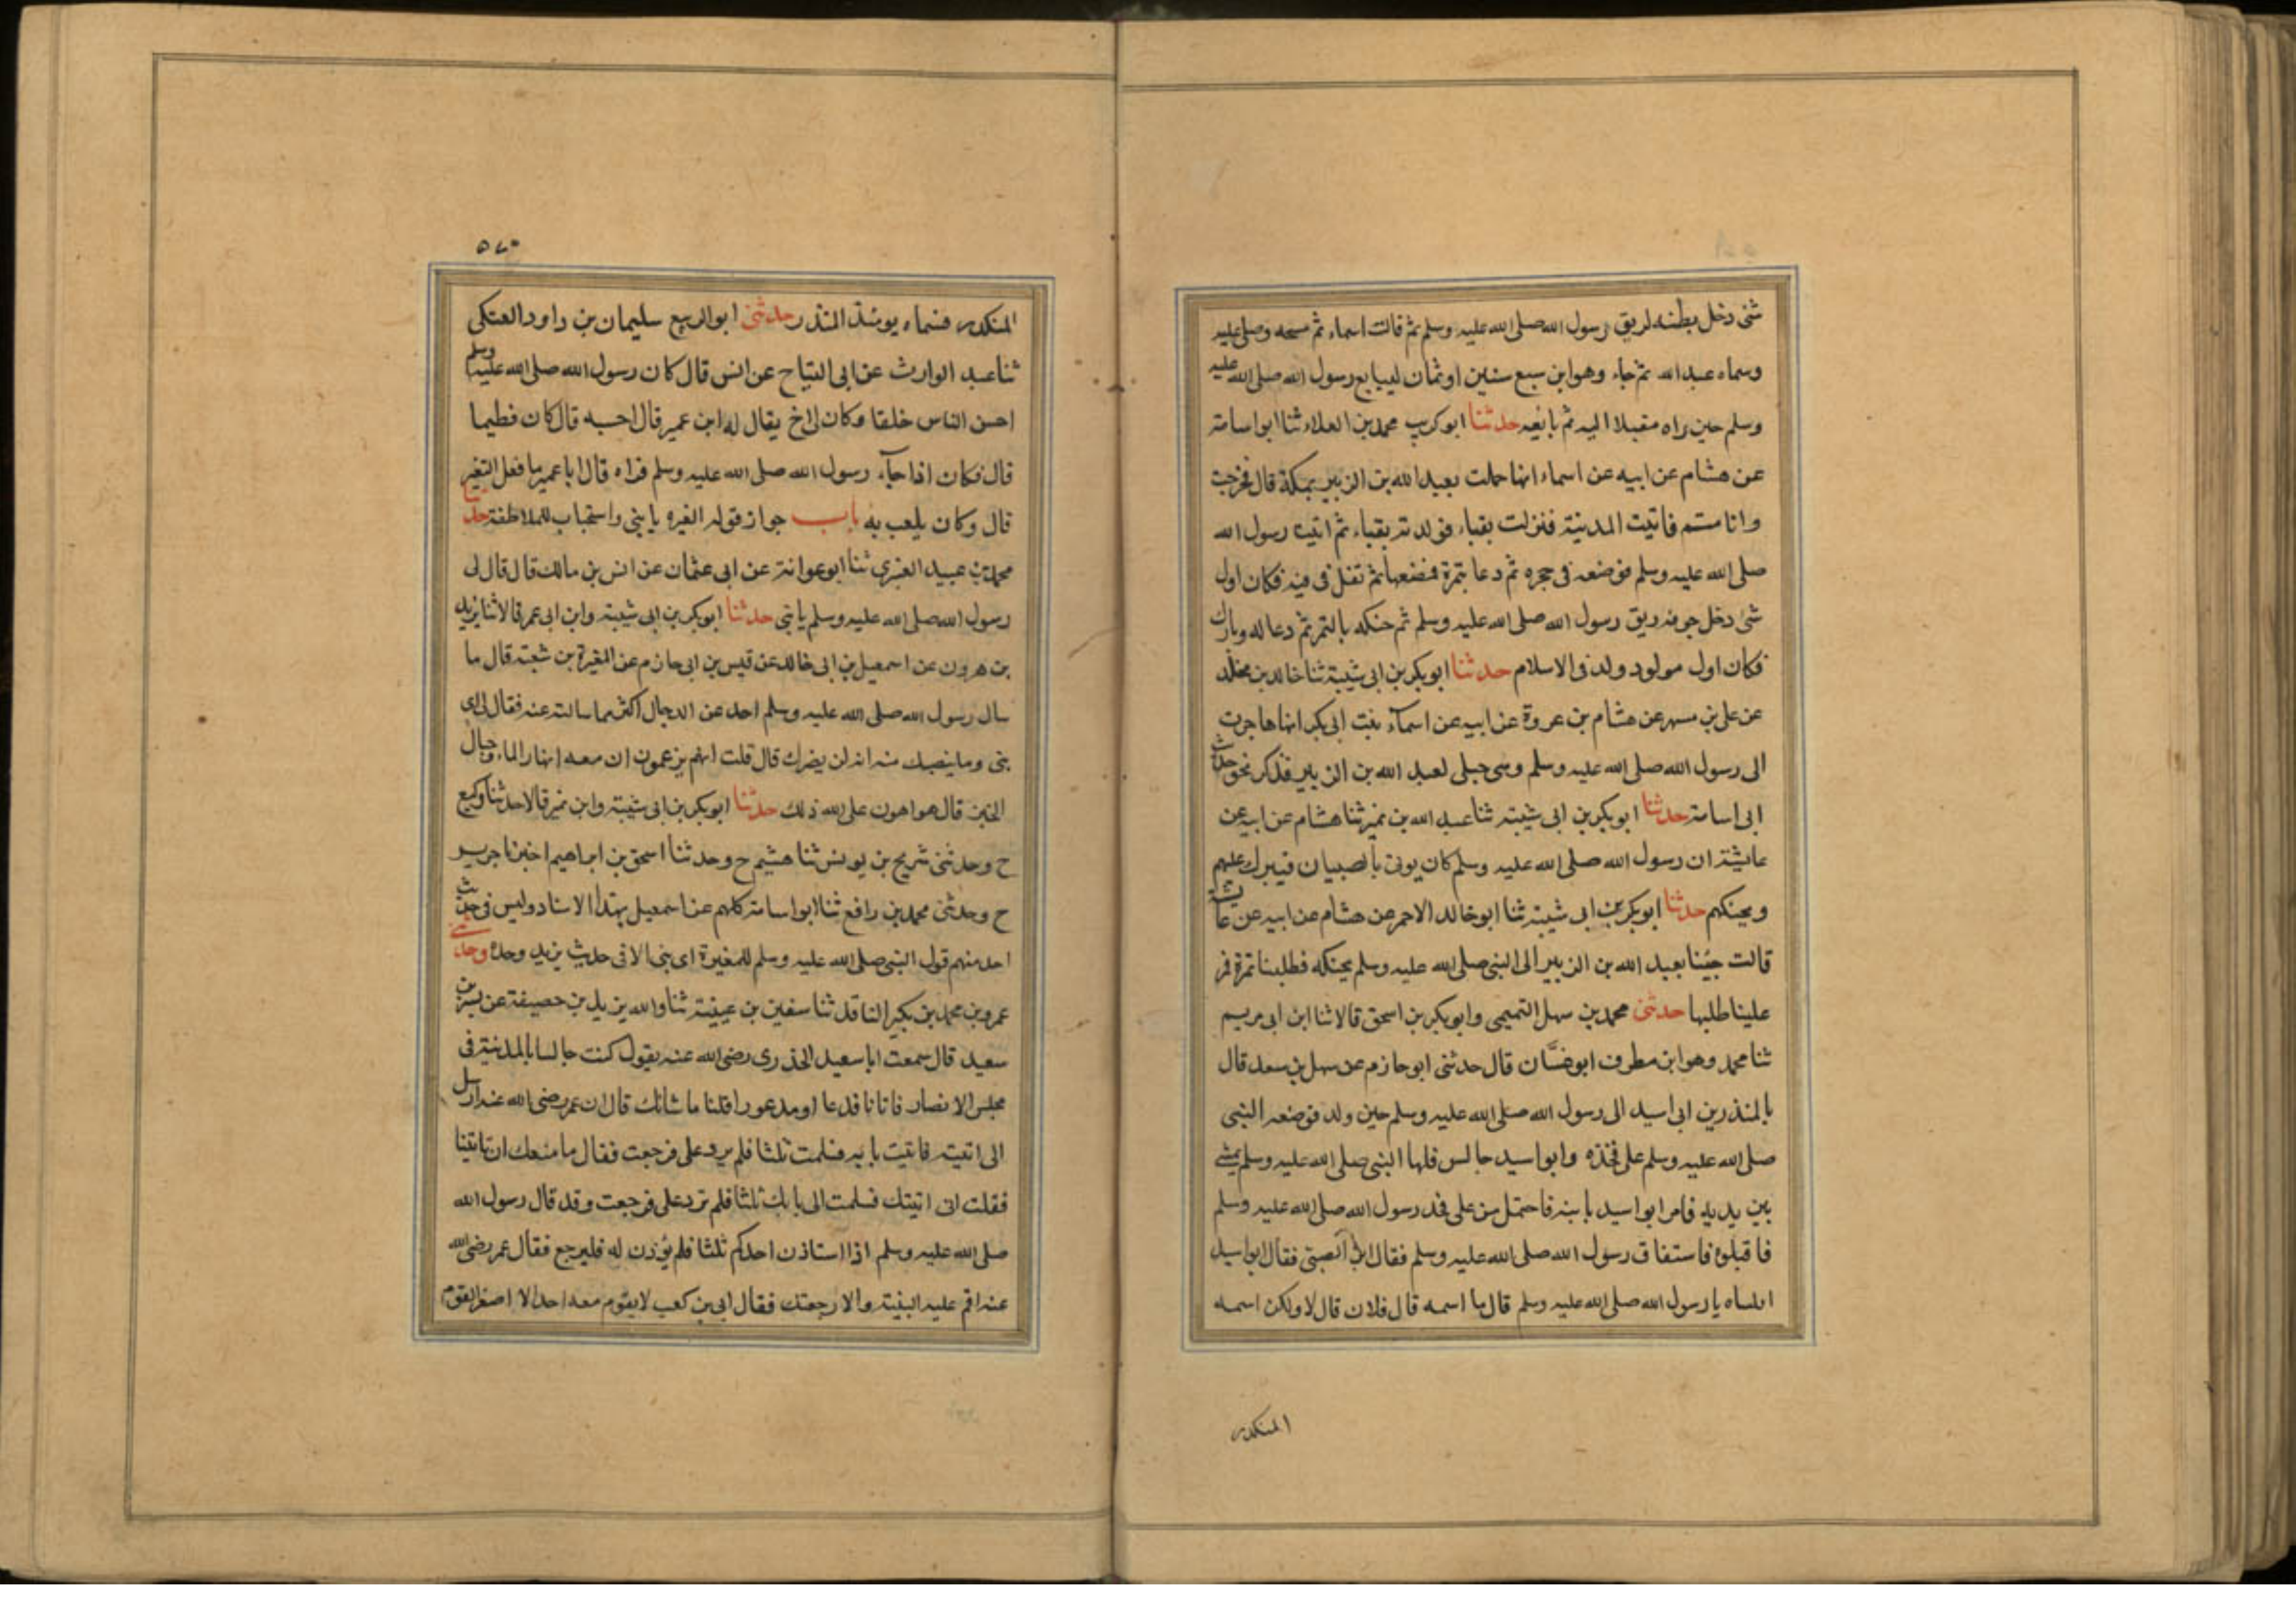 شئ دخل بطنه لريق رسول الله صلى الله عليه وسلم ثم قالت اسماء ثم مسحه وصلى عليه
وسماه عبد الله ثم جاء وهو ابن سبع سنين او ثمان ليبايع رسول الله صلى الله عليه
وسلم حين راه مقبلا اليه ثم بايعه حدثنا ابو كريب محمد بن العلاء ثنا ابو اسامة
عن هشام عن ابيه عن اسماء انها حملت بعبد الله بن الزبير بمكة قال فخرجت
وانا متم فاتيت المدينة فنزلت بقباء فولدته بقباء ثم اتيت رسول الله
صلى الله عليه وسلم فوضعه فى حجره ثم دعا بتمرة فمضغها ثم تفل فى فيه فكان اول
شئ دخل جوفه ريق رسول الله صلى الله عليه وسلم ثم حنكه بالتمر ثم دعا له وبارك
فكان اول مولود ولد فى الاسلام حدثنا ابو بكر بن ابى شيبة ثنا خالد بن مخلد
عن على بن مسهر عن هشام بن عروة عن ابيه عن اسمآء بنت ابى بكر انها هاجرت
الى رسول الله صلى الله عليه وسلم وهى حبلى لعبد الله بن الزبير فذكر نحو حديث
ابى اسامة حدثنا ابو بكر بن ابى شيبة ثنا عبد الله بن نمير ثنا هشام عن ابيه عن
عايشة ان رسول الله صلى الله عليه وسلم كان يوتى بالصبيان فيبرك عليهم
ويحنكهم حدثنا ابو بكر بن ابى شيبة ثنا ابو خالد الاحمر عن هشام عن ابيه عن عايشة
قالت جئنا بعبد الله بن الزبير الى النبى صلى الله عليه وسلم يحنكه فطلبنا تمرة فعز
علينا طلبها حدثنى محمد بن سهل التميمى وابو بكر بن اسحق قالا ثنا ابن ابى مريم
ثنا محمد وهو ابن مطرف ابو غسّان قال حدثنى ابو حازم عن سهل بن سعد قال
بالمنذر بن ابى اسيد الى رسول الله صلى الله عليه وسلم حين ولد فوضعه النبى
صلى الله عليه وسلم على فخذه وابو اسيد جالس فلها النبى صلى الله عليه وسلم بشئ
بين يديه فامر ابو اسيد بابنه فاحتمل من على فخذ رسول الله صلى الله عليه وسلم
فاقبلوه فاستفاق رسول الله صلى الله عليه وسلم فقال اين الصبى فقال ابو اسيد
اقلبناه يا رسول الله صلى الله عليه وسلم قال ما اسمه قال فلان قال لا ولكن اسمه
المنكدر
٥٧٥
المنكدر فسماه يومئذ المنذر حدثنى ابو الربيع سليمان بن داود العتكى
ثنا عبد الوارث عن ابى التياح عن انس قال كان رسول الله صلى الله عليه وسلم
احسن الناس خلقا وكان لى اخ يقال له ابن عمير قال احسبه قال كان فطيما
قال فكان اذا جآء رسول الله صلى الله عليه وسلم فراه قال ابا عمير ما فعل النغير
قال وكان يلعب به باب جواز قوله لغيره يا بنى واستحباب للملاطفة حدثنا
محمد بن عبيد الغبرى ثنا ابو عوانة عن ابى عثمان عن انس بن مالك قال قال لى
رسول الله صلى الله عليه وسلم يا بنى حدثنا ابو بكر بن ابى شيبة وابن ابى عمر قالا ثنا يزيد
بن هرون عن اسمعيل بن ابى خالد عن قيس بن ابى حازم عن المغيرة بن شعبة قال ما
سال رسول الله صلى الله عليه وسلم احد عن الدجال اكثر مما سالته عنه فقال لى اى
بنى وما ينصبك منه انه لن يضرك قال قلت انهم يزعمون ان معه انهار الماء وجبال
الخبز قال هو اهون على الله ذلك حدثنا ابو بكر بن ابى شيبة وابن نمير قالا حدثنا وكيع
ح وحدثنى شريح بن يونس ثنا هشيم ح وحدثنا اسحق بن ابراهيم اخبرنا جرير
ح وحدثنى محمد بن رافع ثنا ابو اسامة كلهم عن اسمعيل بهذا الاسناد وليس فى حديث
احد منهم قول النبى صلى الله عليه وسلم للمغيرة اى بنى الا فى حديث يزيد وحده وحدثنى
عمرو بن محمد بن بكير الناقد ثنا سفين بن عيينة ثنا والله يزيد بن خصيفة عن بسر بن
سعيد قال سمعت ابا سعيد الخدرى رضى الله عنه يقول كنت جالسا بالمدينة فى
مجلس الانصار فاتانا فدعا او مدعورا قلنا ما شانك قال ان عمر رضى الله عنه ارسل
الى ان اتيته فاتيت بابه فسلمت ثلثا فلم يرد على فرجعت فقال ما منعك ان تاتينا
فقلت انى اتيتك فسلمت الى بابك ثلثا فلم ترد على فرجعت وقد قال رسول الله
صلى الله عليه وسلم اذا استاذن احدكم ثلثا فلم يؤذن له فليرجع فقال عمر رضى الله
عنه اقم عليه البينة والا رجعتك فقال ابى بن كعب لا يقوم معه احد الا اصغر القوم